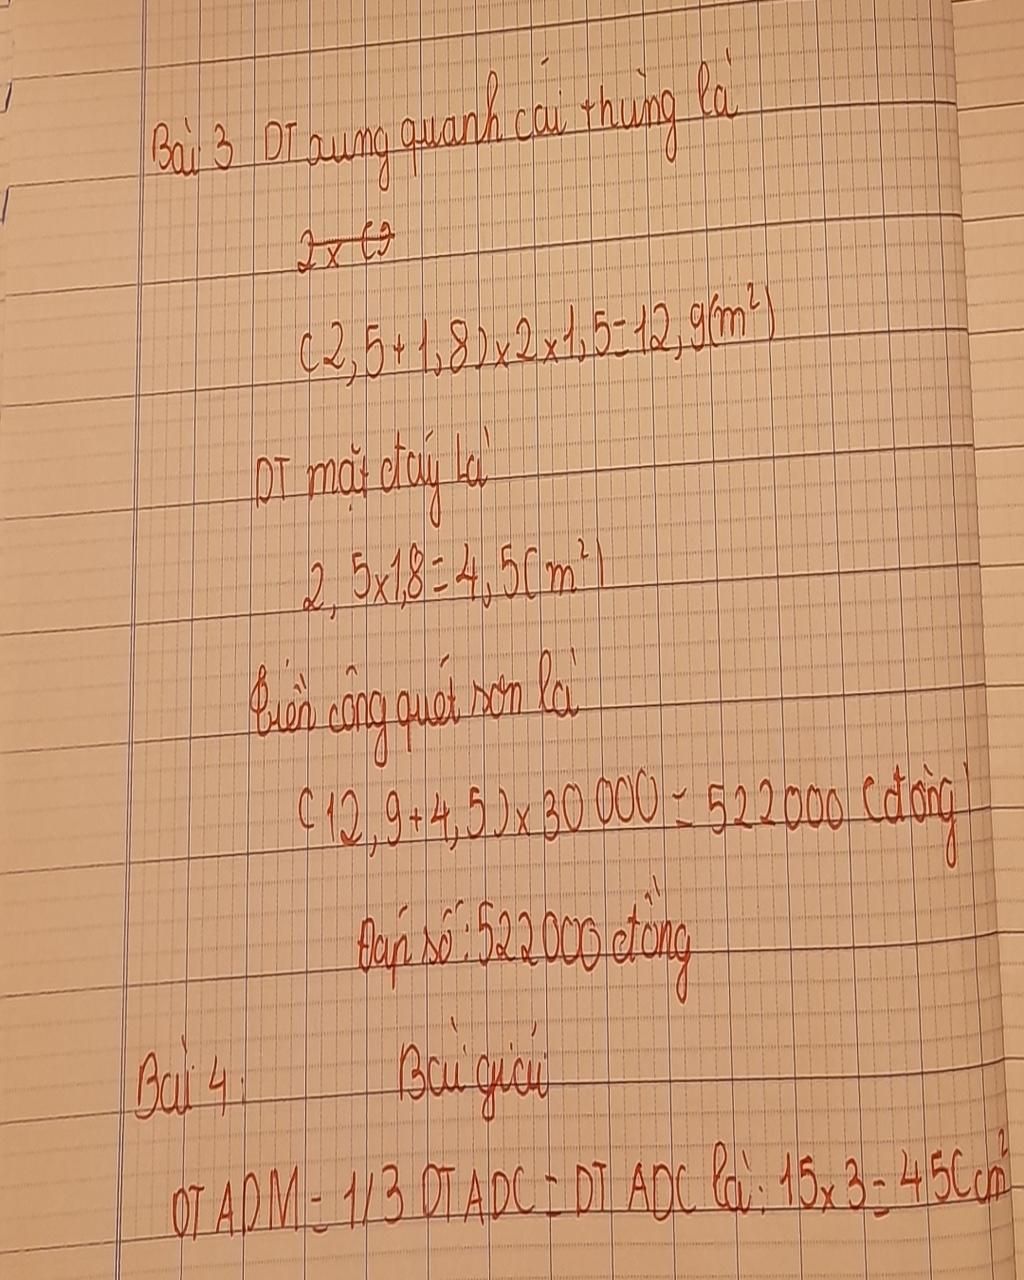 Bài 3 DT xung quanh cái thùng là
2 x (
(2,5+1,8)x2x1,5=12,9(m²)
DT mặt đáy là
2,5x1,8=4,5(m²)
Tiền công quét sơn là
(12,9+4,5)x30 000 = 522000 (đồng)
Đáp số: 522000 đồng
Bài 4: Bài giải
DT ADM = 1/3 DT ADC = DT ADC là: 15x3=45(cm²